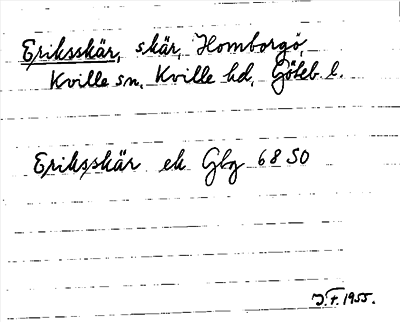 Eriksskär, skär, Homborgö,
Kville sn. Kville hd, Göteb. l.
Eriksskär ek Gbg 68 SO
J.F. 1955.